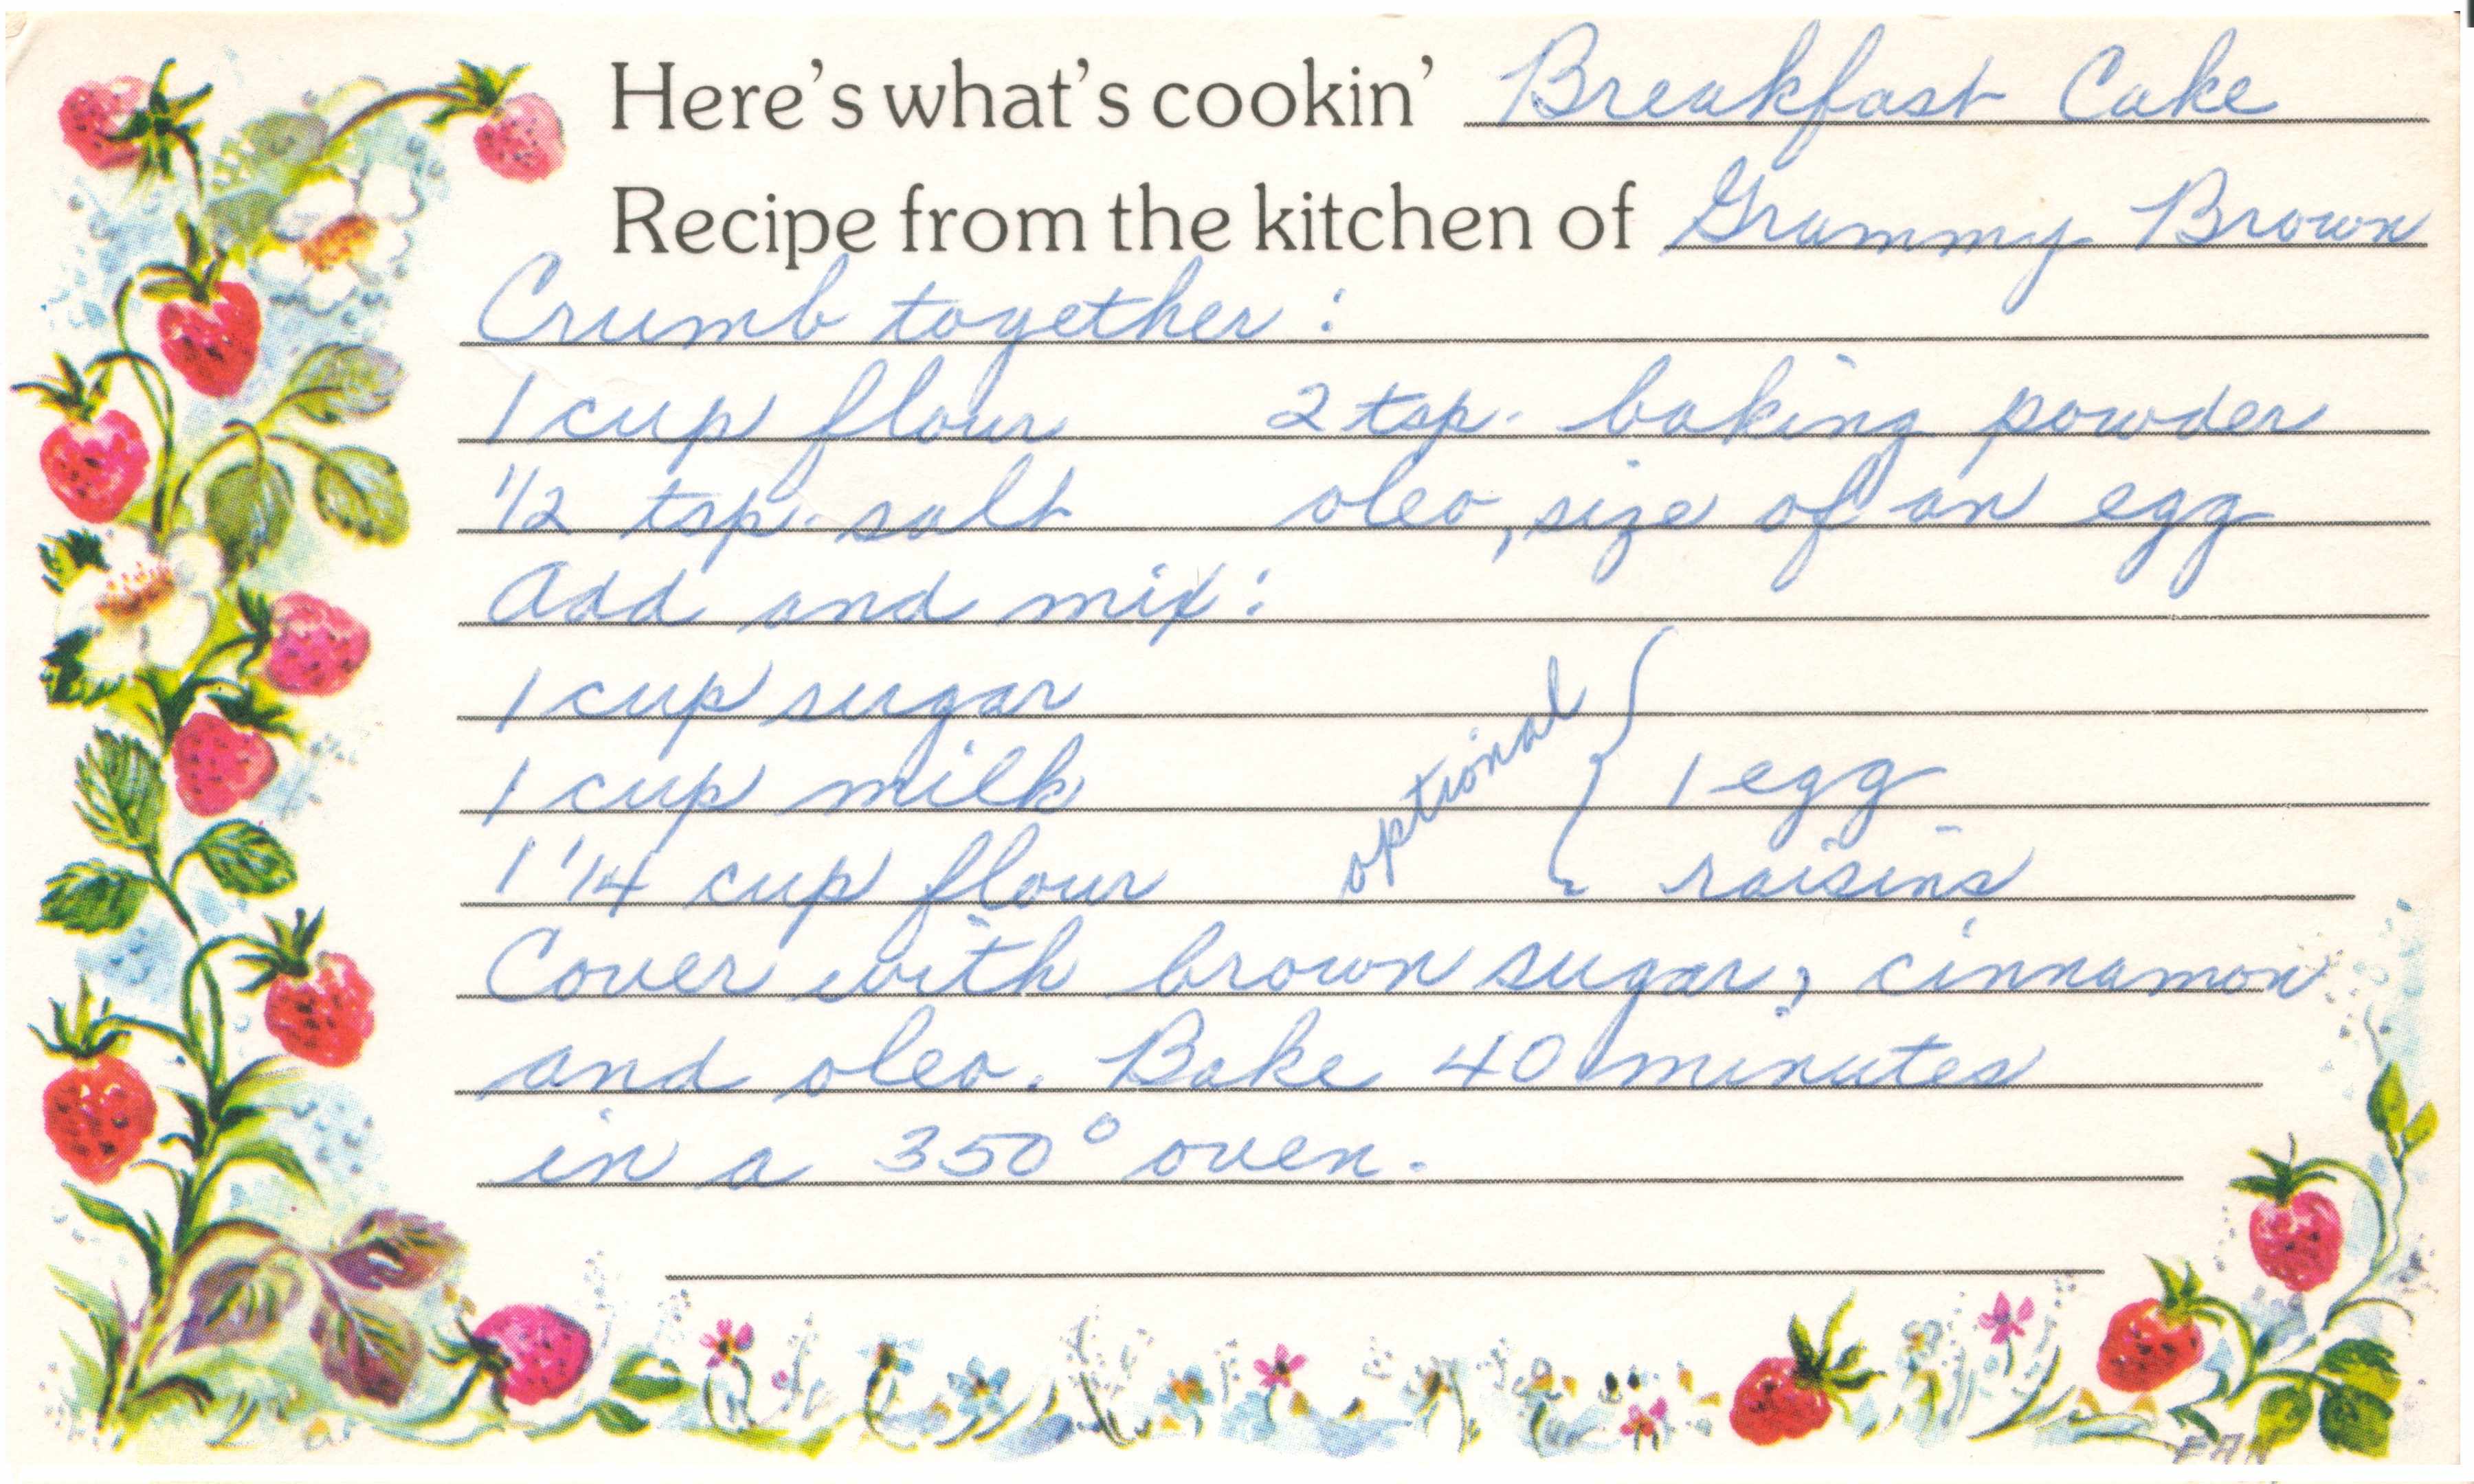 Here's what's cookin' Breakfast Cake
Recipe from the kitchen of Grammy Brown
Crumb together:
1 cup flour 2 tsp. baking powder
1/2 tsp. salt oleo, size of an egg
Add and mix:
1 cup sugar
1 cup milk optional { 1 egg
1 1/4 cup flour raisins
Cover with brown sugar, cinnamon
and oleo. Bake 40 minutes
in a 350° oven.